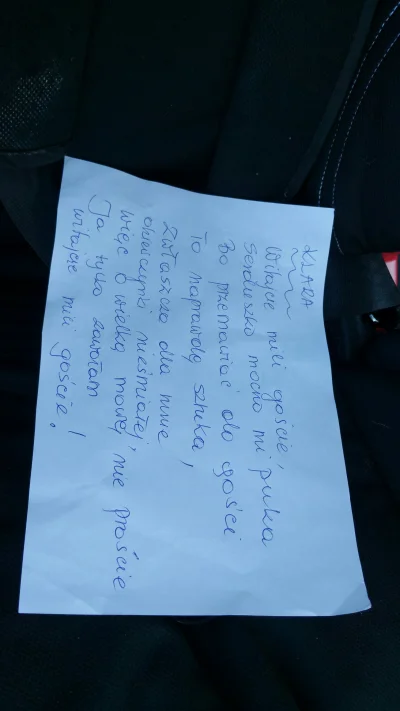 KLARA
Witajcie mili goście,
serduszko mocno mi puka
Bo przemawiać do gości
To naprawdę sztuka,
Zwłaszcza dla mnie
dziewczynki nieśmiałej,
więc o wielką mowę, nie proście
Ja tylko zawołam
witajcie mili goście!